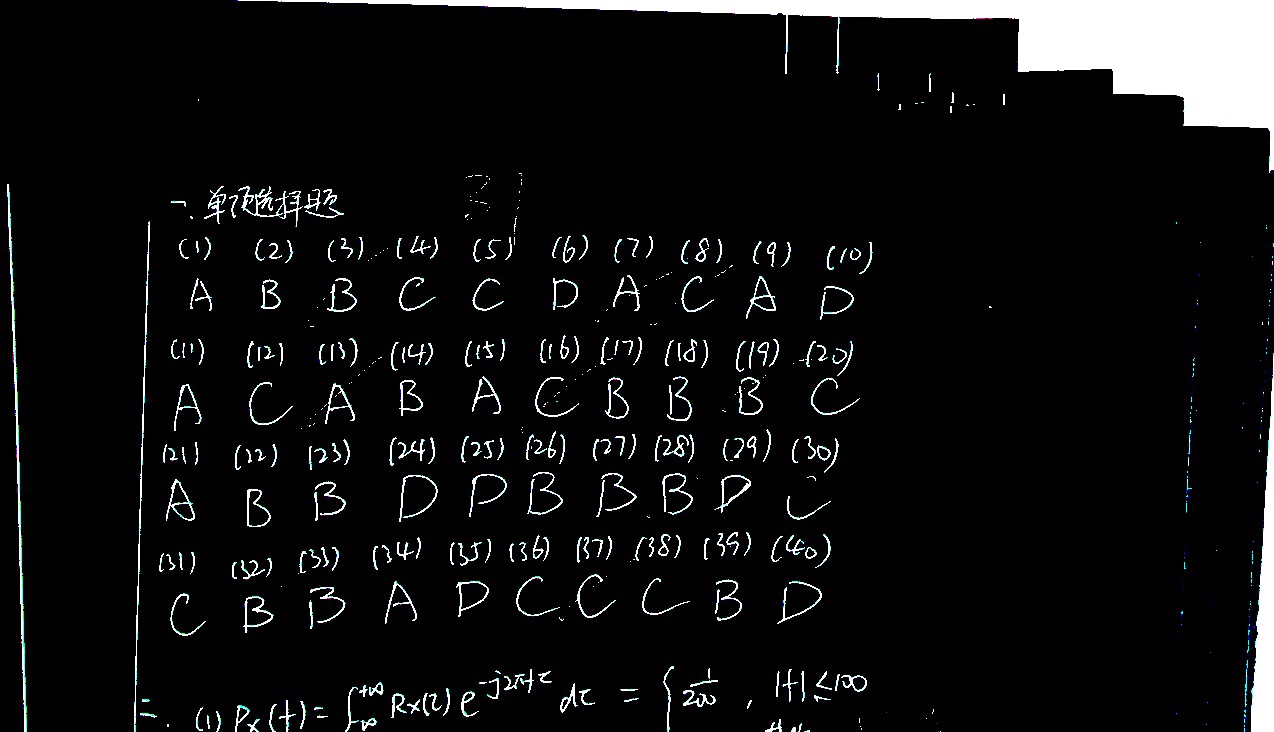 一. 单项选择题
(1) (2) (3) (4) (5) (6) (7) (8) (9) (10)
A B B C C D A C A D
(11) (12) (13) (14) (15) (16) (17) (18) (19) (20)
A C A B A C B B B C
(21) (22) (23) (24) (25) (26) (27) (28) (29) (30)
A B B D D B B B D C
(31) (32) (33) (34) (35) (36) (37) (38) (39) (40)
C B B A D C C C B D
二. (1) Px(f) = ∫_{-∞}^{+∞} Rx(τ) e^{-j2πfτ} dτ = { 1/200 , |f| ≤ 100